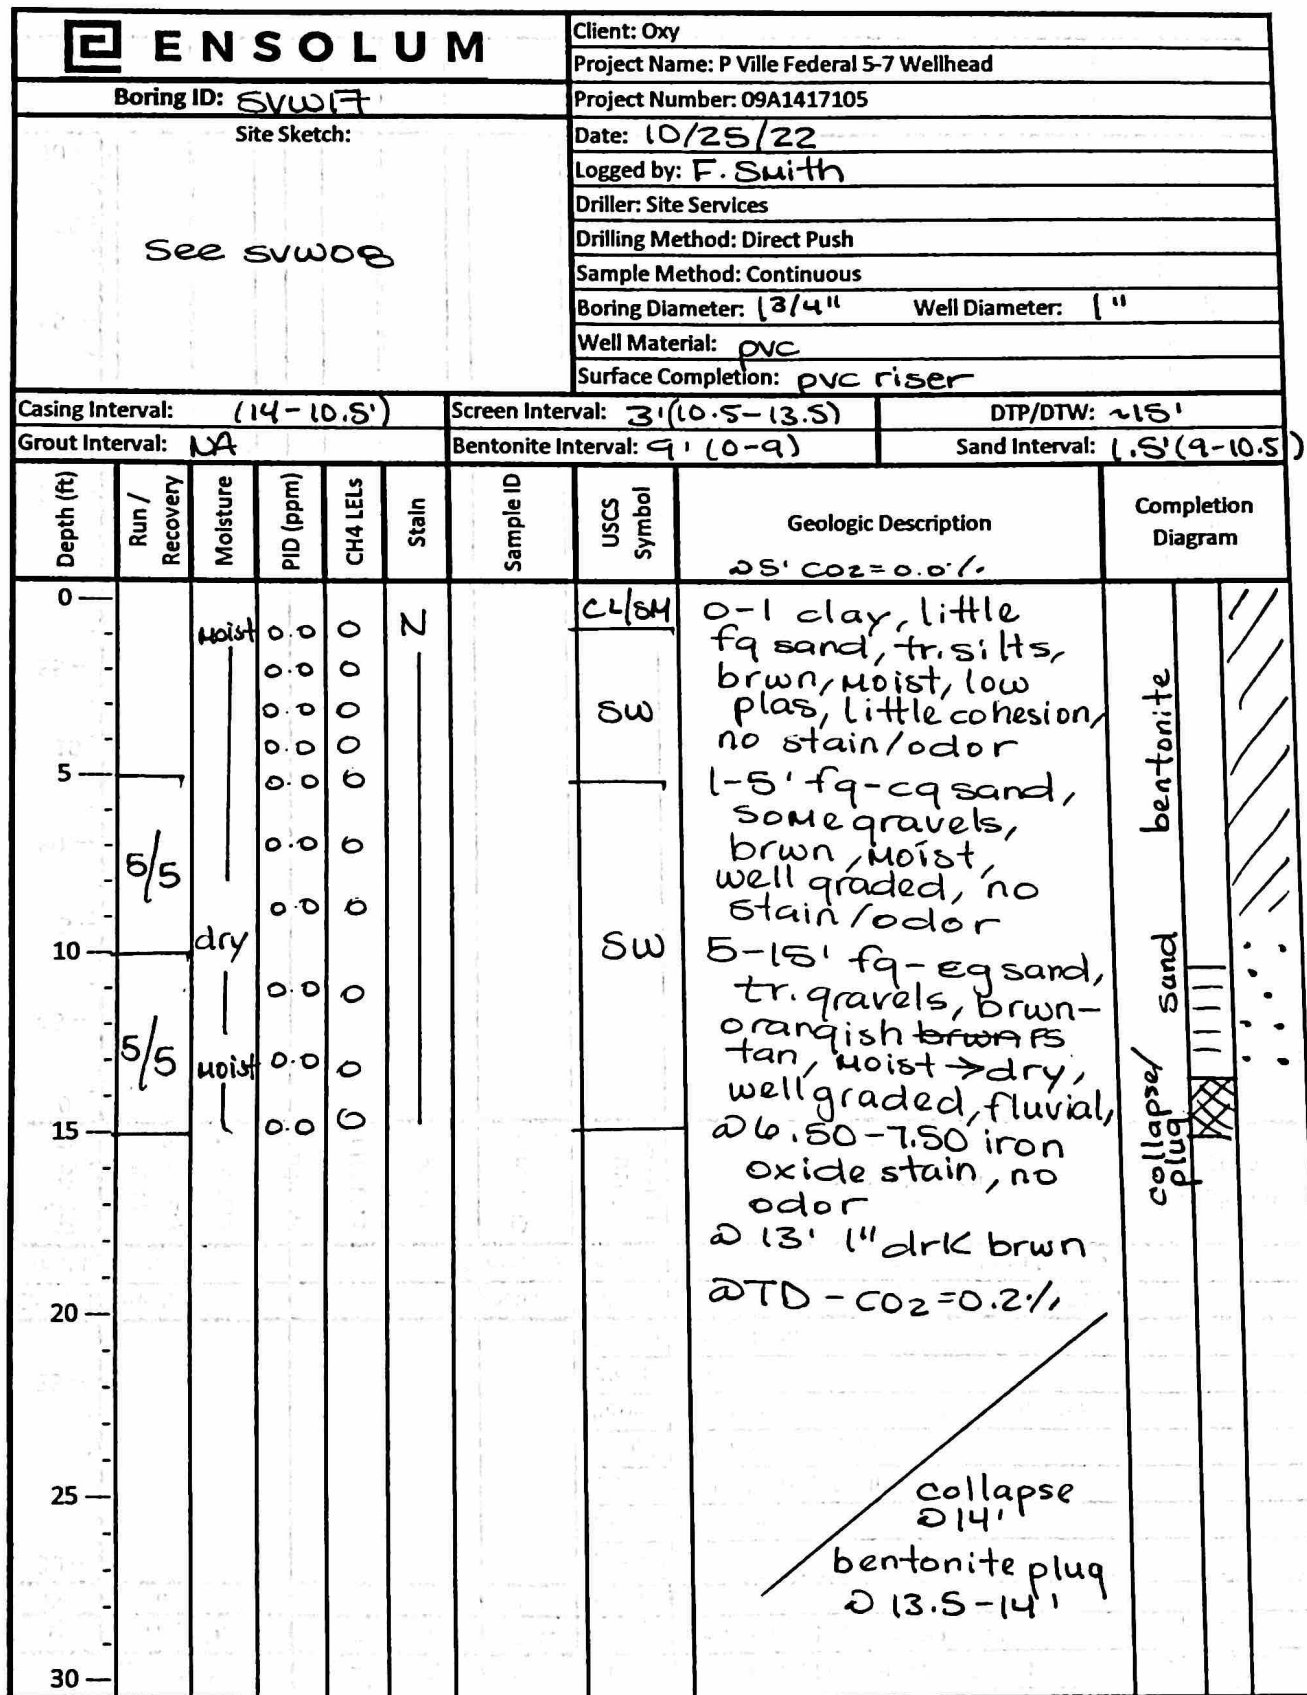 ENSOLUM
Boring ID: SVW17
Site Sketch:
See SVW08
Client: Oxy
Project Name: P Ville Federal 5-7 Wellhead
Project Number: 09A1417105
Date: 10/25/22
Logged by: F. Smith
Driller: Site Services
Drilling Method: Direct Push
Sample Method: Continuous
Boring Diameter: 1 3/4" Well Diameter: 1"
Well Material: pvc
Surface Completion: pvc riser
Casing Interval: (14-10.5') Screen Interval: 3'(10.5-13.5) DTP/DTW: ~15'
Grout Interval: NA Bentonite Interval: 9' (0-9) Sand Interval: 1.5'(9-10.5)
Depth (ft) Run / Recovery Moisture PID (ppm) CH4 LELs Stain Sample ID USCS Symbol Geologic Description Completion Diagram
@5' CO2=0.0%
0
5
10
15
20
25
30
5/5
5/5
Moist
dry
Moist
0.0 0
0.0 0
0.0 0
0.0 0
0.0 0
0.0 0
0.0 0
0.0 0
0.0 0
0.0 0
N
CL/SM
SW
SW
0-1 clay, little
fg sand, tr. silts,
brwn, moist, low
plas, little cohesion,
no stain/odor
1-5' fg-cg sand,
some gravels,
brwn, moist,
well graded, no
stain/odor
5-15' fg-cg sand,
tr. gravels, brwn-
orangish brwn FS
tan, moist → dry,
well graded, fluvial,
@ 6.50-7.50 iron
oxide stain, no
odor
@ 13' 1" drk brwn
@TD - CO2=0.2%
collapse
@ 14'
bentonite plug
@ 13.5-14'
bentonite
sand
collapse/
plug